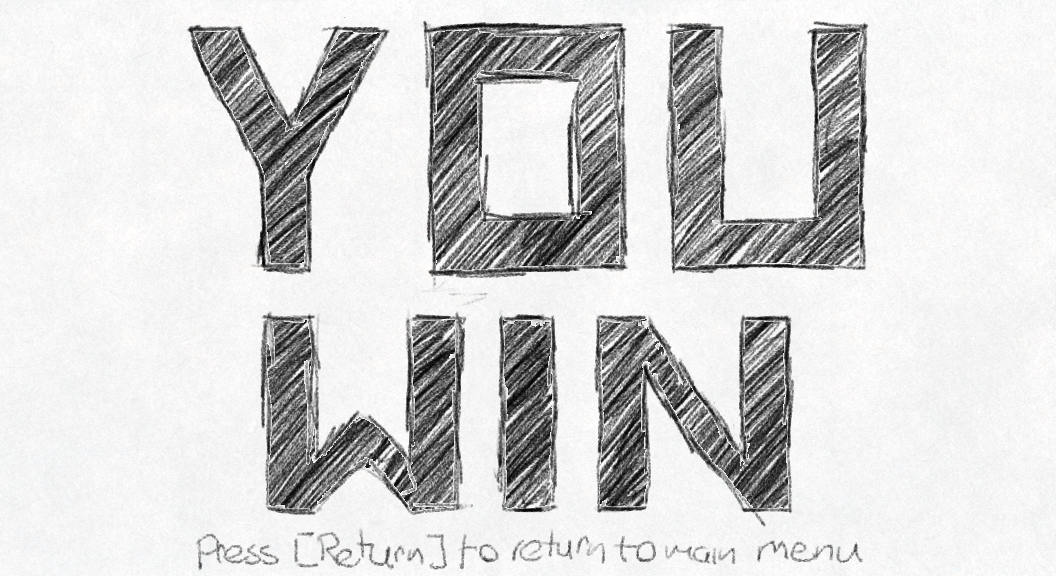 YOU
WIN
Press [Return] to return to main menu